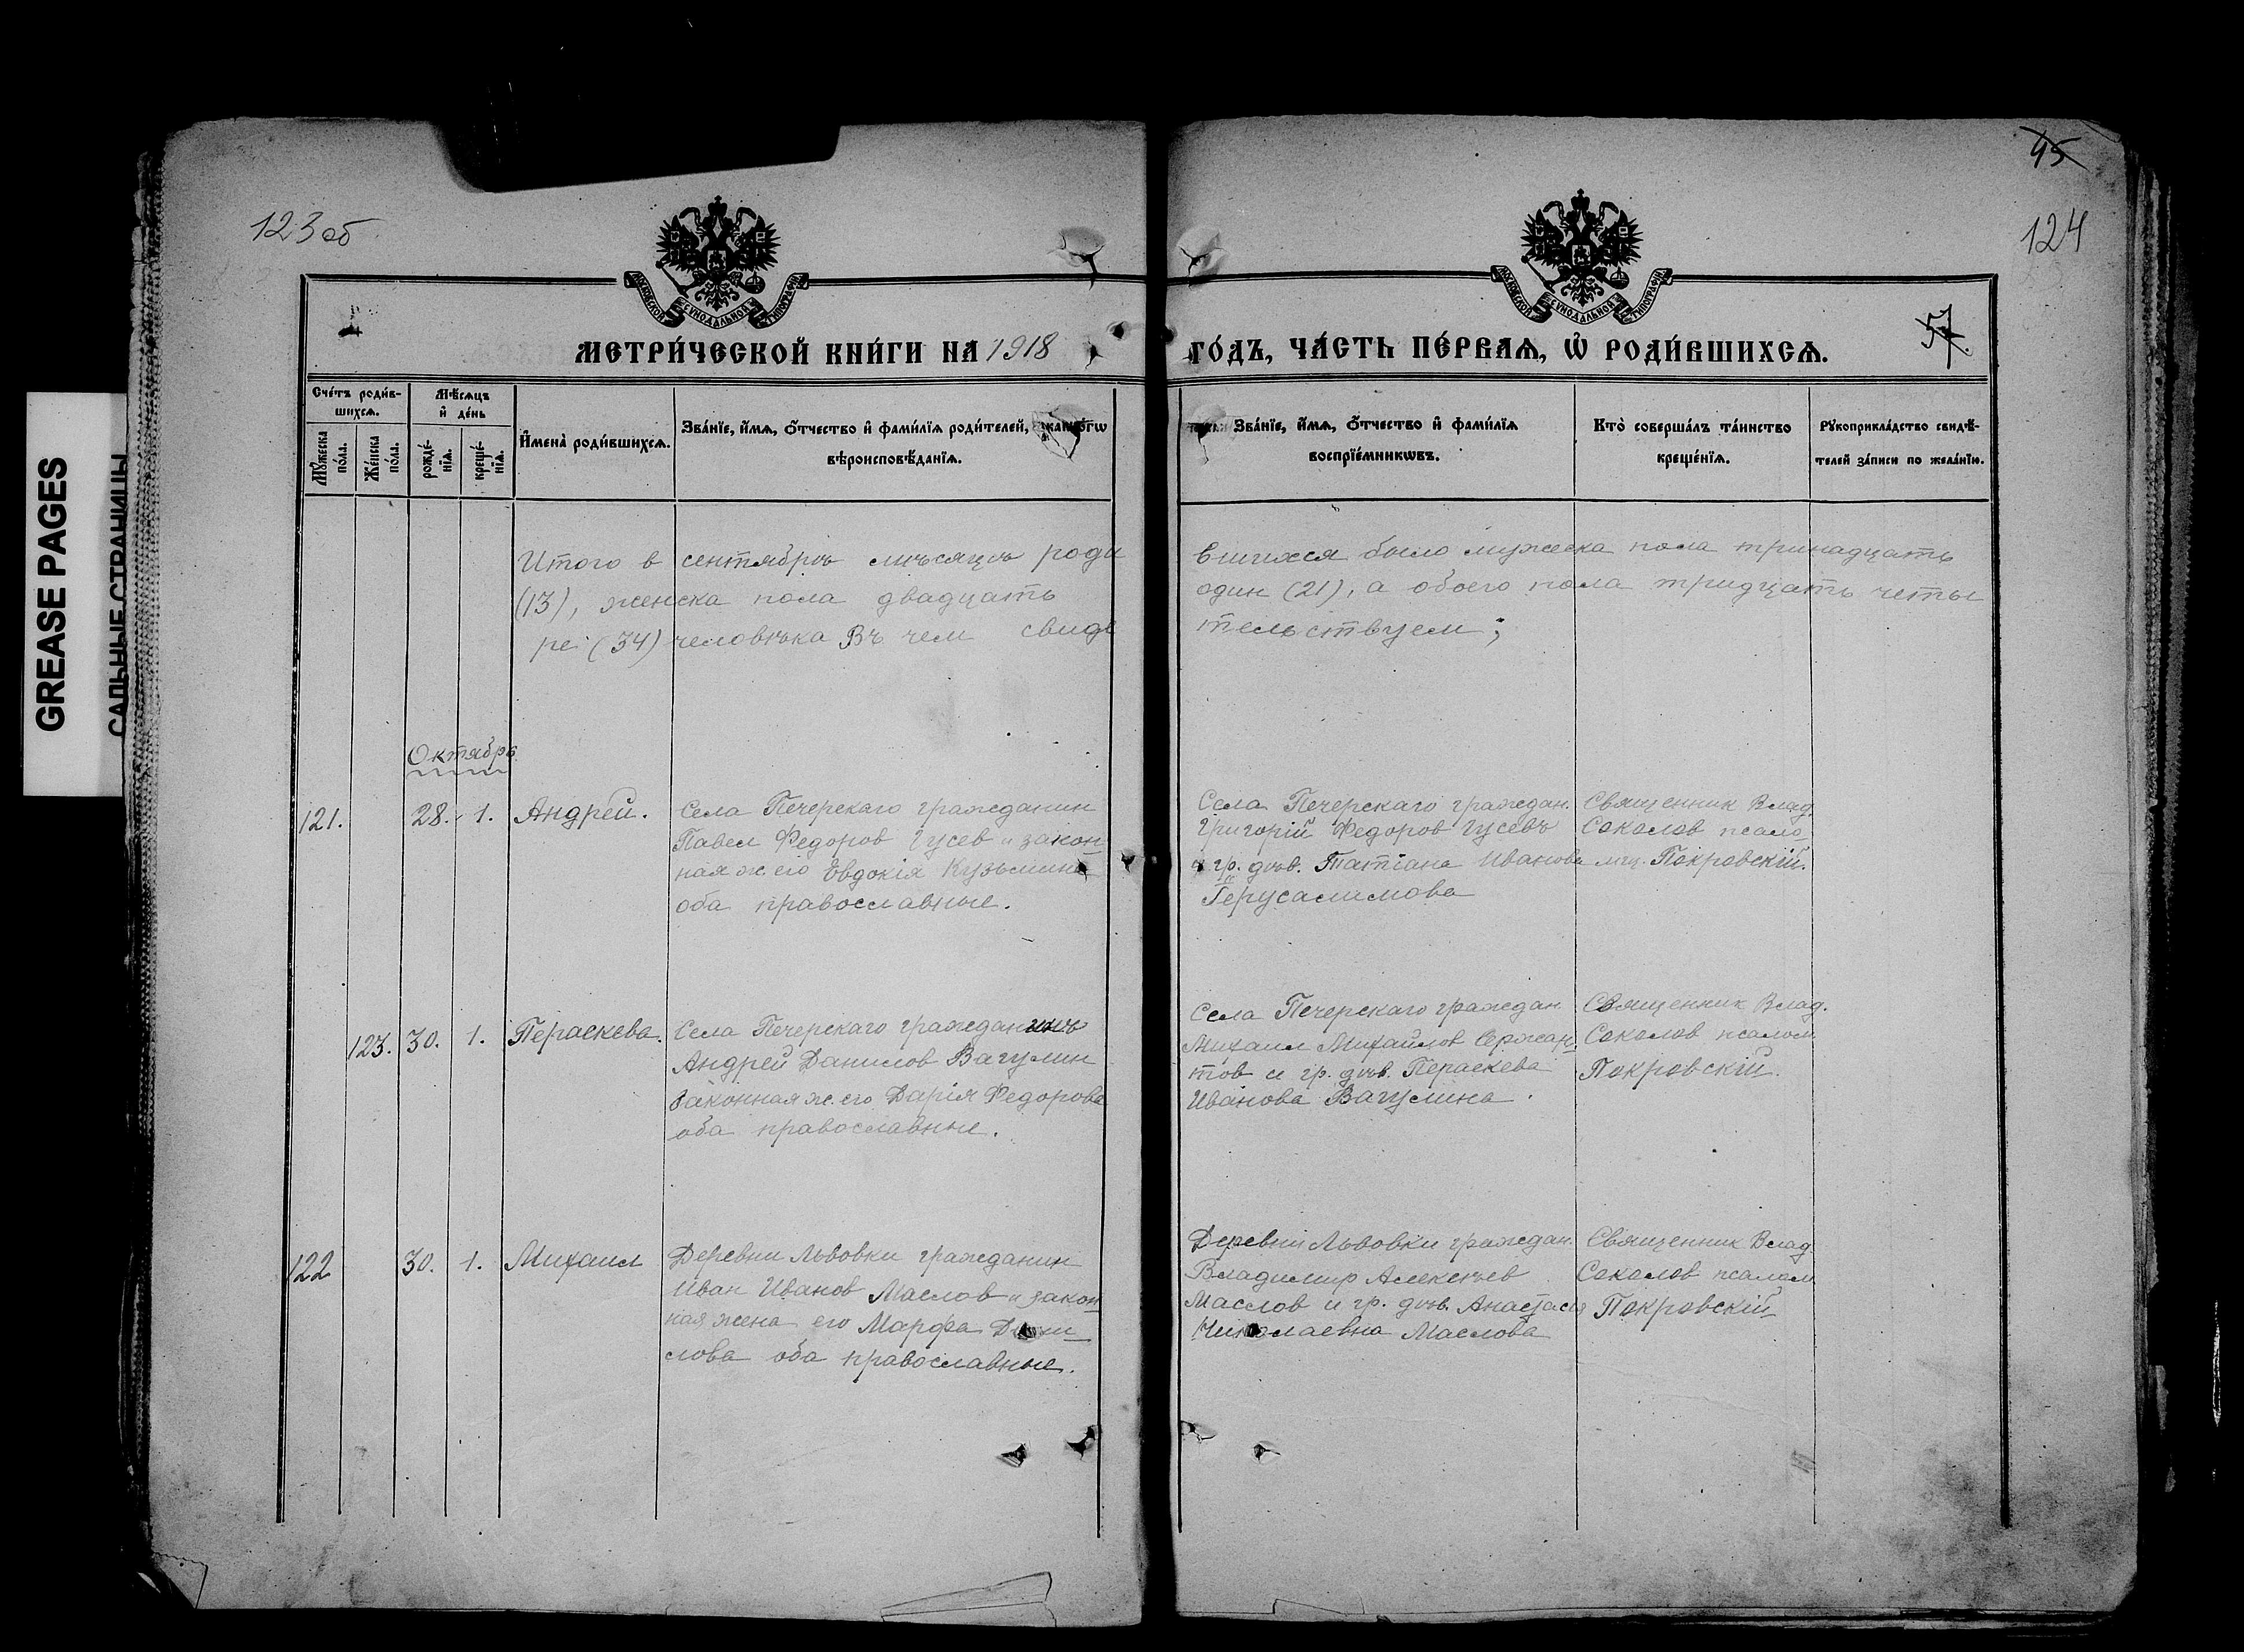 GREASE PAGES
САЛЬНЫЕ СТРАНИЦЫ
123 об
45
124
57
МОСКОВСКОЙ СѴНОДАЛЬНОЙ ТИПОГРАФІИ
МОСКОВСКОЙ СѴНОДАЛЬНОЙ ТИПОГРАФІИ
МЕТРИ́ЧЕСКОЙ КНИ́ГИ НА 1918 ГО́ДЪ, ЧА́СТЬ ПЕ́РВАѦ, Ѡ҆ РОДИ́ВШИХСѦ.
Сче́тъ роди́в-
шихсѧ.
Мꙋ́жеска по́ла.
Же́нска по́ла.
Мѣ́сѧцъ
и҆ де́нь
рожде́-
нїѧ.
креще́-
нїѧ.
И҆мена̀ роди́вшихсѧ.
Зва́нїе, и҆́мѧ, ѻ҆́тчество и҆ фами́лїѧ роди́телей, и҆ како́гѡ
вѣроисповѣ́данїѧ.
Зва́нїе, и҆́мѧ, ѻ҆́тчество и҆ фами́лїѧ
воспрїе́мникѡвъ.
Кто̀ соверша́лъ та́инство
креще́нїѧ.
Рꙋкоприкла́дство свидѣ́-
телей за́писи по жела́нїю.
Итого в сентябрѣ мѣсяцѣ роди вшихся было мужеска пола тринадцать
(13), женска пола двадцать один (21), а обоего пола тридцать четы
ре (34) человѣка Въ чем свидѣ тельствуем;
Октябрь
121. 28. 1. Андрей.
Села Печерскаго гражданин
Павел Федоров Гусев и закон
ная ж. его Евдокія Кузьмина
оба православные.
Села Печерскаго граждан.
Григорій Федоров Гусевъ
и гр. дѣв. Татіана Иванова
Іерусалимова
Священник Влад.
Соколов псало
мщ. Покровскій.
123. 30. 1. Пераскева.
Села Печерскаго гражданинъ
Андрей Данилов Вагулин
законная ж. его Дарія Федорова
оба православные.
Села Печерскаго граждан
Михаил Михайлов Сержан
тов и гр. дѣв. Пераскева
Иванова Вагулина.
Священник Влад.
Соколов псалом
Покровскій.
122 30. 1. Михаил
Деревни Львовки гражданин
Иван Иванов Маслов и закон
ная жена его Марфа Дани
лова оба православные.
Деревни Львовки граждан.
Владимир Алексѣев
Маслов и гр. дѣв. Анастасія
Николаевна Маслова
Священник Влад
Соколов псалом
Покровскій